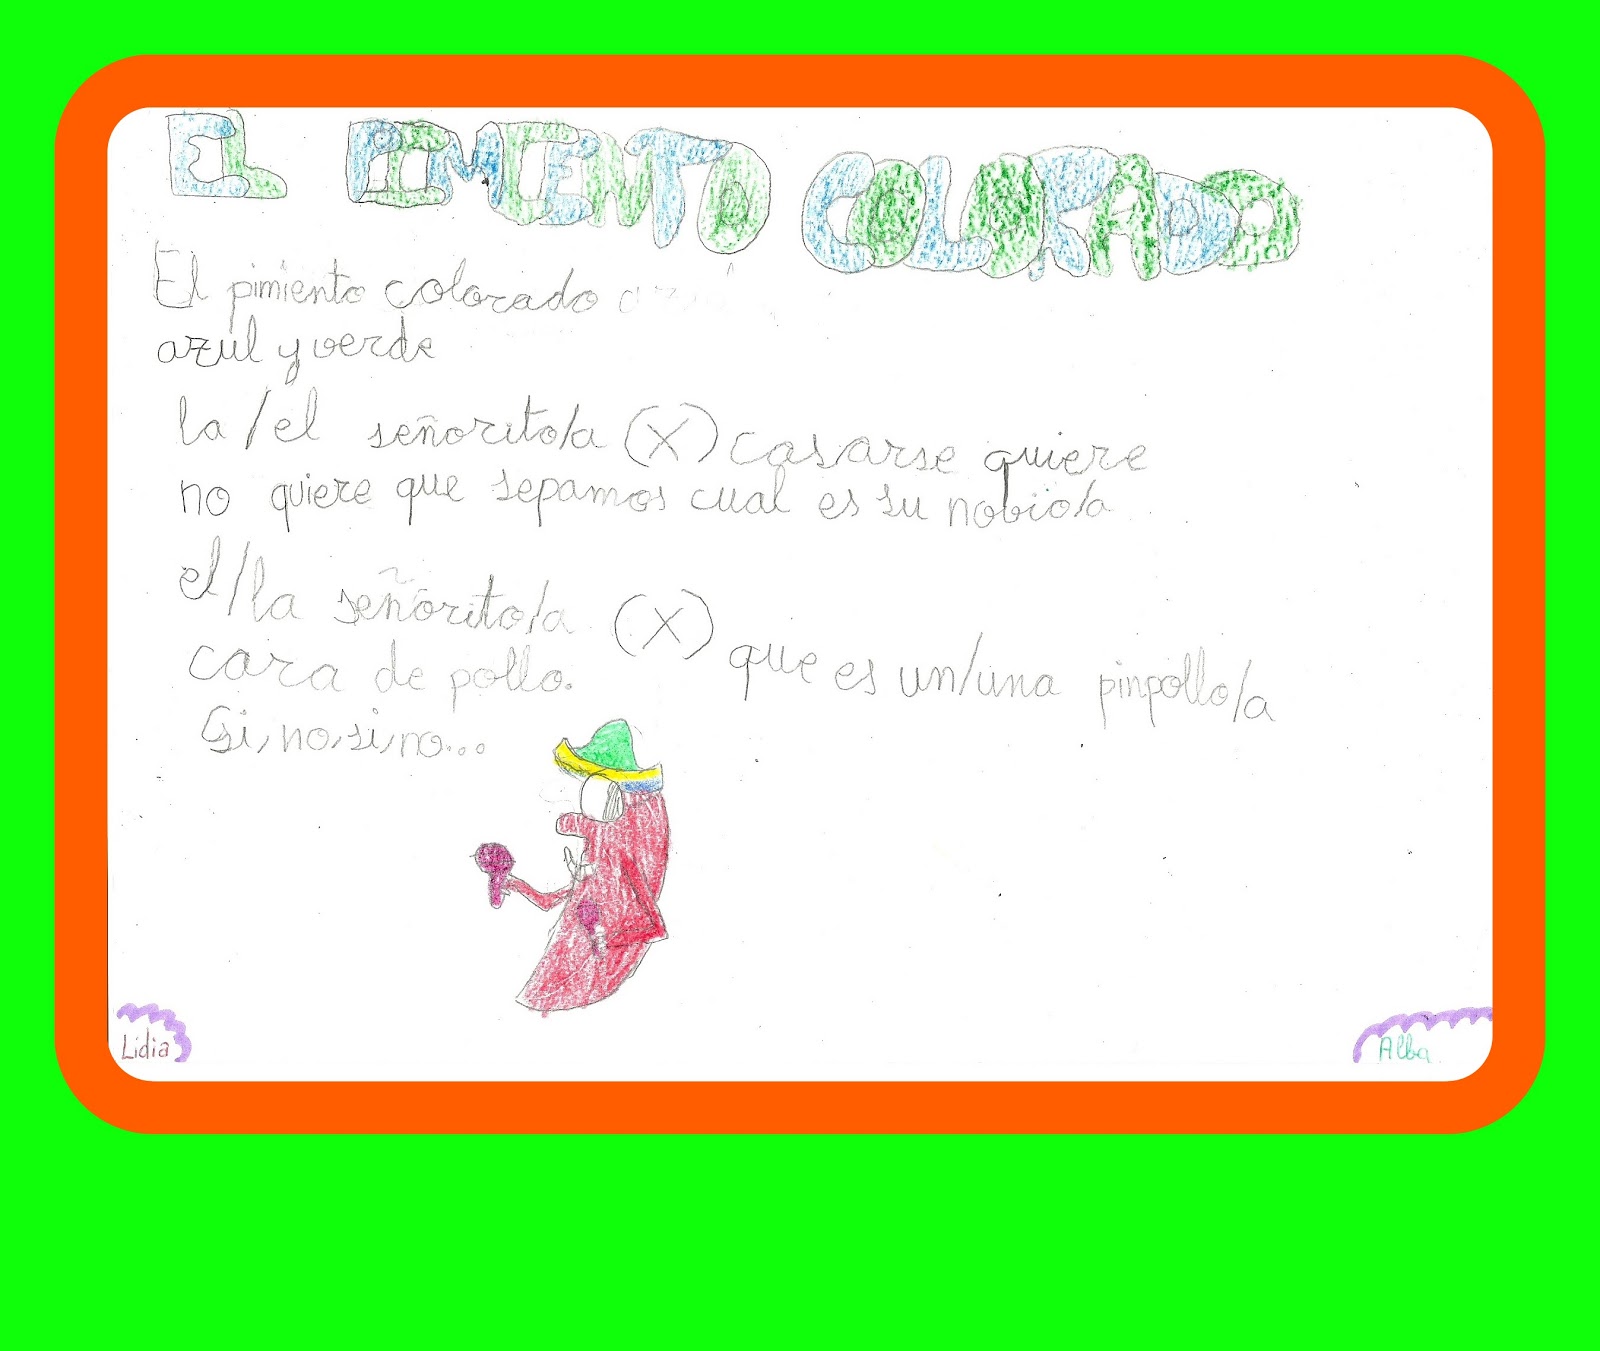 EL PIMIENTO COLORADO
El pimiento colorado
azul y verde
la/el señorito/a (X) casarse quiere
no quiere que sepamos cual es su nobio/a
el/la señorito/a (X) que es un/una pinpollo/a
cara de pollo.
Si, no, si, no...
Lidia
Alba